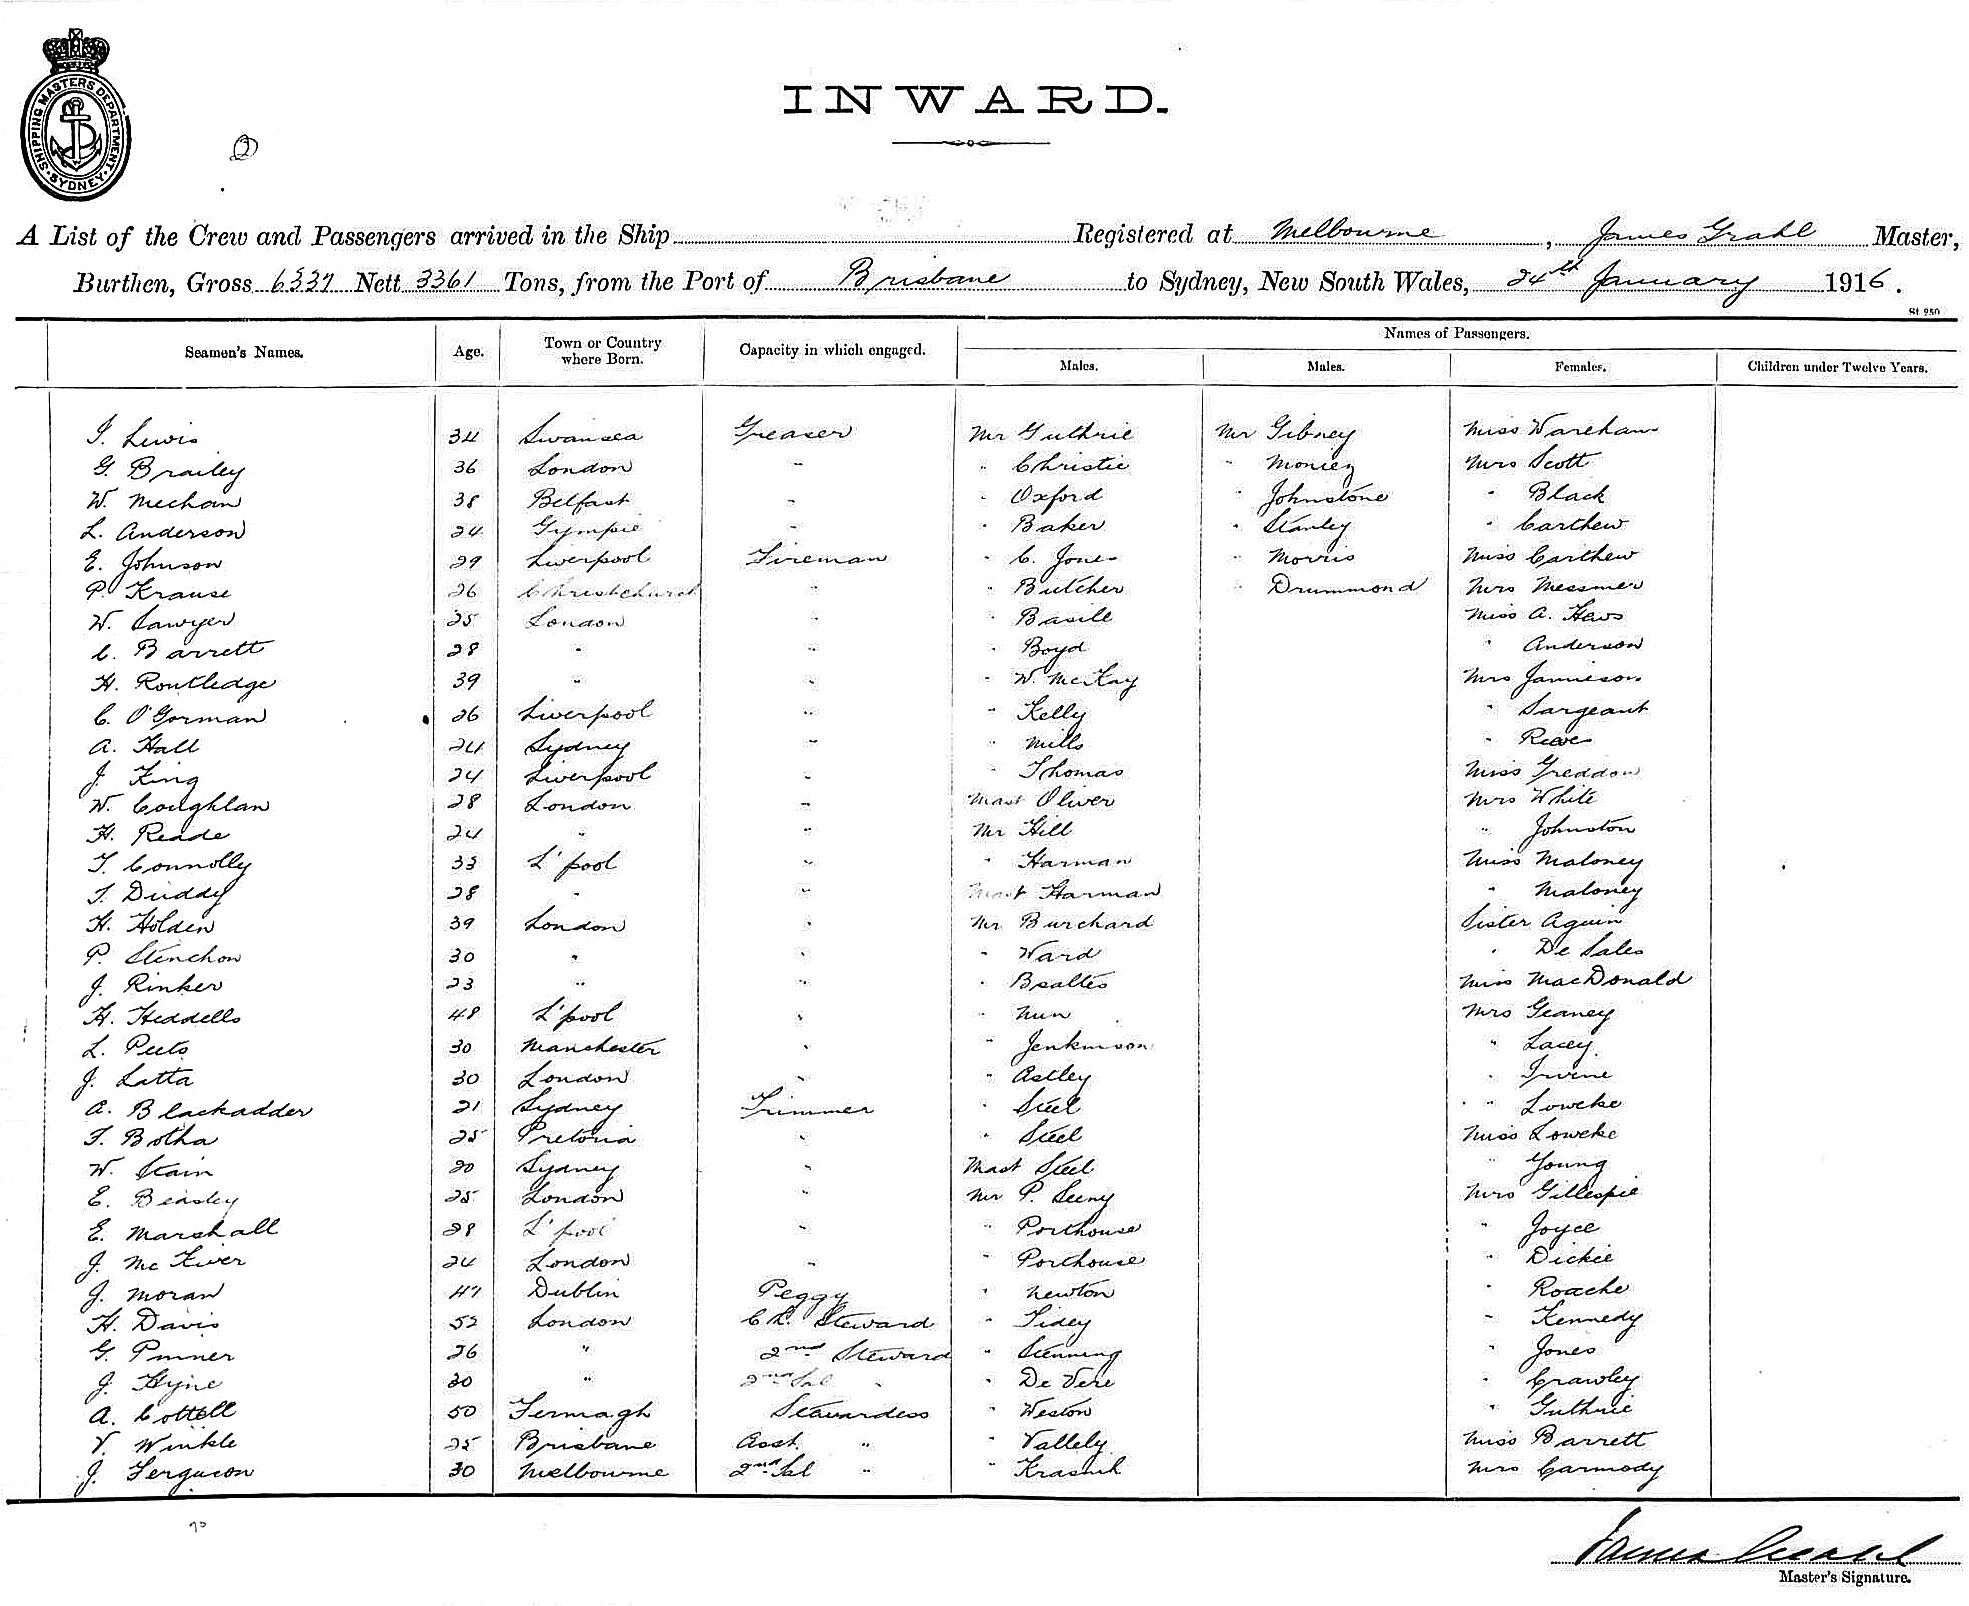 SHIPPING MASTERS DEPARTMENT
SYDNEY
INWARD.
A List of the Crew and Passengers arrived in the Ship Registered at Melbourne, James Grahl Master,
Burthen, Gross 6337 Nett 3361 Tons, from the Port of Brisbane to Sydney, New South Wales, 24th January 1916.
St 250
Seamen's Names. Age. Town or Country where Born. Capacity in which engaged. Names of Passengers.
Males. Males. Females. Children under Twelve Years.
I. Lewis 34 Swansea Greaser Mr Guthrie Mr Gibney Miss Wareham
G. Brailey 36 London " " Christie " Moniez Mrs Scott
W. Mechan 38 Belfast " " Oxford " Johnstone " Black
L. Anderson 24 Gympie " " Baker " Stanley " Carthew
E. Johnson 29 Liverpool Fireman " C. Jones " Morris Miss Carthew
P. Krause 26 Christchurch " " Butcher " Drummond Mrs Messmer
W. Sawyer 25 London " " Basile Miss A. Haws
C. Barrett 28 " " " Boyd " Anderson
H. Routledge 39 " " " W. McKay Mrs Jamieson
C. O'Gorman 26 Liverpool " " Kelly " Sargeant
A. Hall 24 Sydney " " Mills " Reeve
J. King 24 Liverpool " " Thomas Miss Greddon
W. Coughlan 28 London " Mast Oliver Mrs White
H. Reade 24 " " Mr Hill " Johnston
T. Connolly 33 L'pool " " Harman Miss Maloney
T. Duddy 28 " " Mast Harman " Maloney
H. Holden 39 London " Mr Burchard Sister Aquin
P. Stenchon 30 " " " Ward " De Sales
J. Rinker 23 " " " Bealtes Miss MacDonald
H. Heddells 48 L'pool " " Nun Mrs Geaney
L. Peets 30 Manchester " " Jenkinson " Lacey
J. Latta 30 London " " Astley " Irvine
A. Blackadder 21 Sydney Trimmer " Steel " Loweke
T. Botha 25 Pretoria " " Steel Miss Loweke
W. Stain 20 Sydney " Mast Steel " Young
E. Beasley 25 London " Mr P. Seeny Mrs Gillespie
E. Marshall 28 L'pool " " Porthouse " Joyce
J. McKiver 24 London " " Porthouse " Dickie
J. Moran 47 Dublin Peggy " Newton " Roache
H. Davis 52 London Ch. Steward " Tidey " Kennedy
G. Pinner 26 " 2nd Steward " Stenning " Jones
J. Hyne 30 " 2nd Sal " " De Vere " Crawley
A. Cottell 50 Fermagh Stewardess " Weston " Guthrie
V. Winkle 25 Brisbane Asst. " " Vallely Miss Barrett
J. Ferguson 30 Melbourne 2nd Sal " " Krasnik Mrs Carmody
James Grahl
Master's Signature.